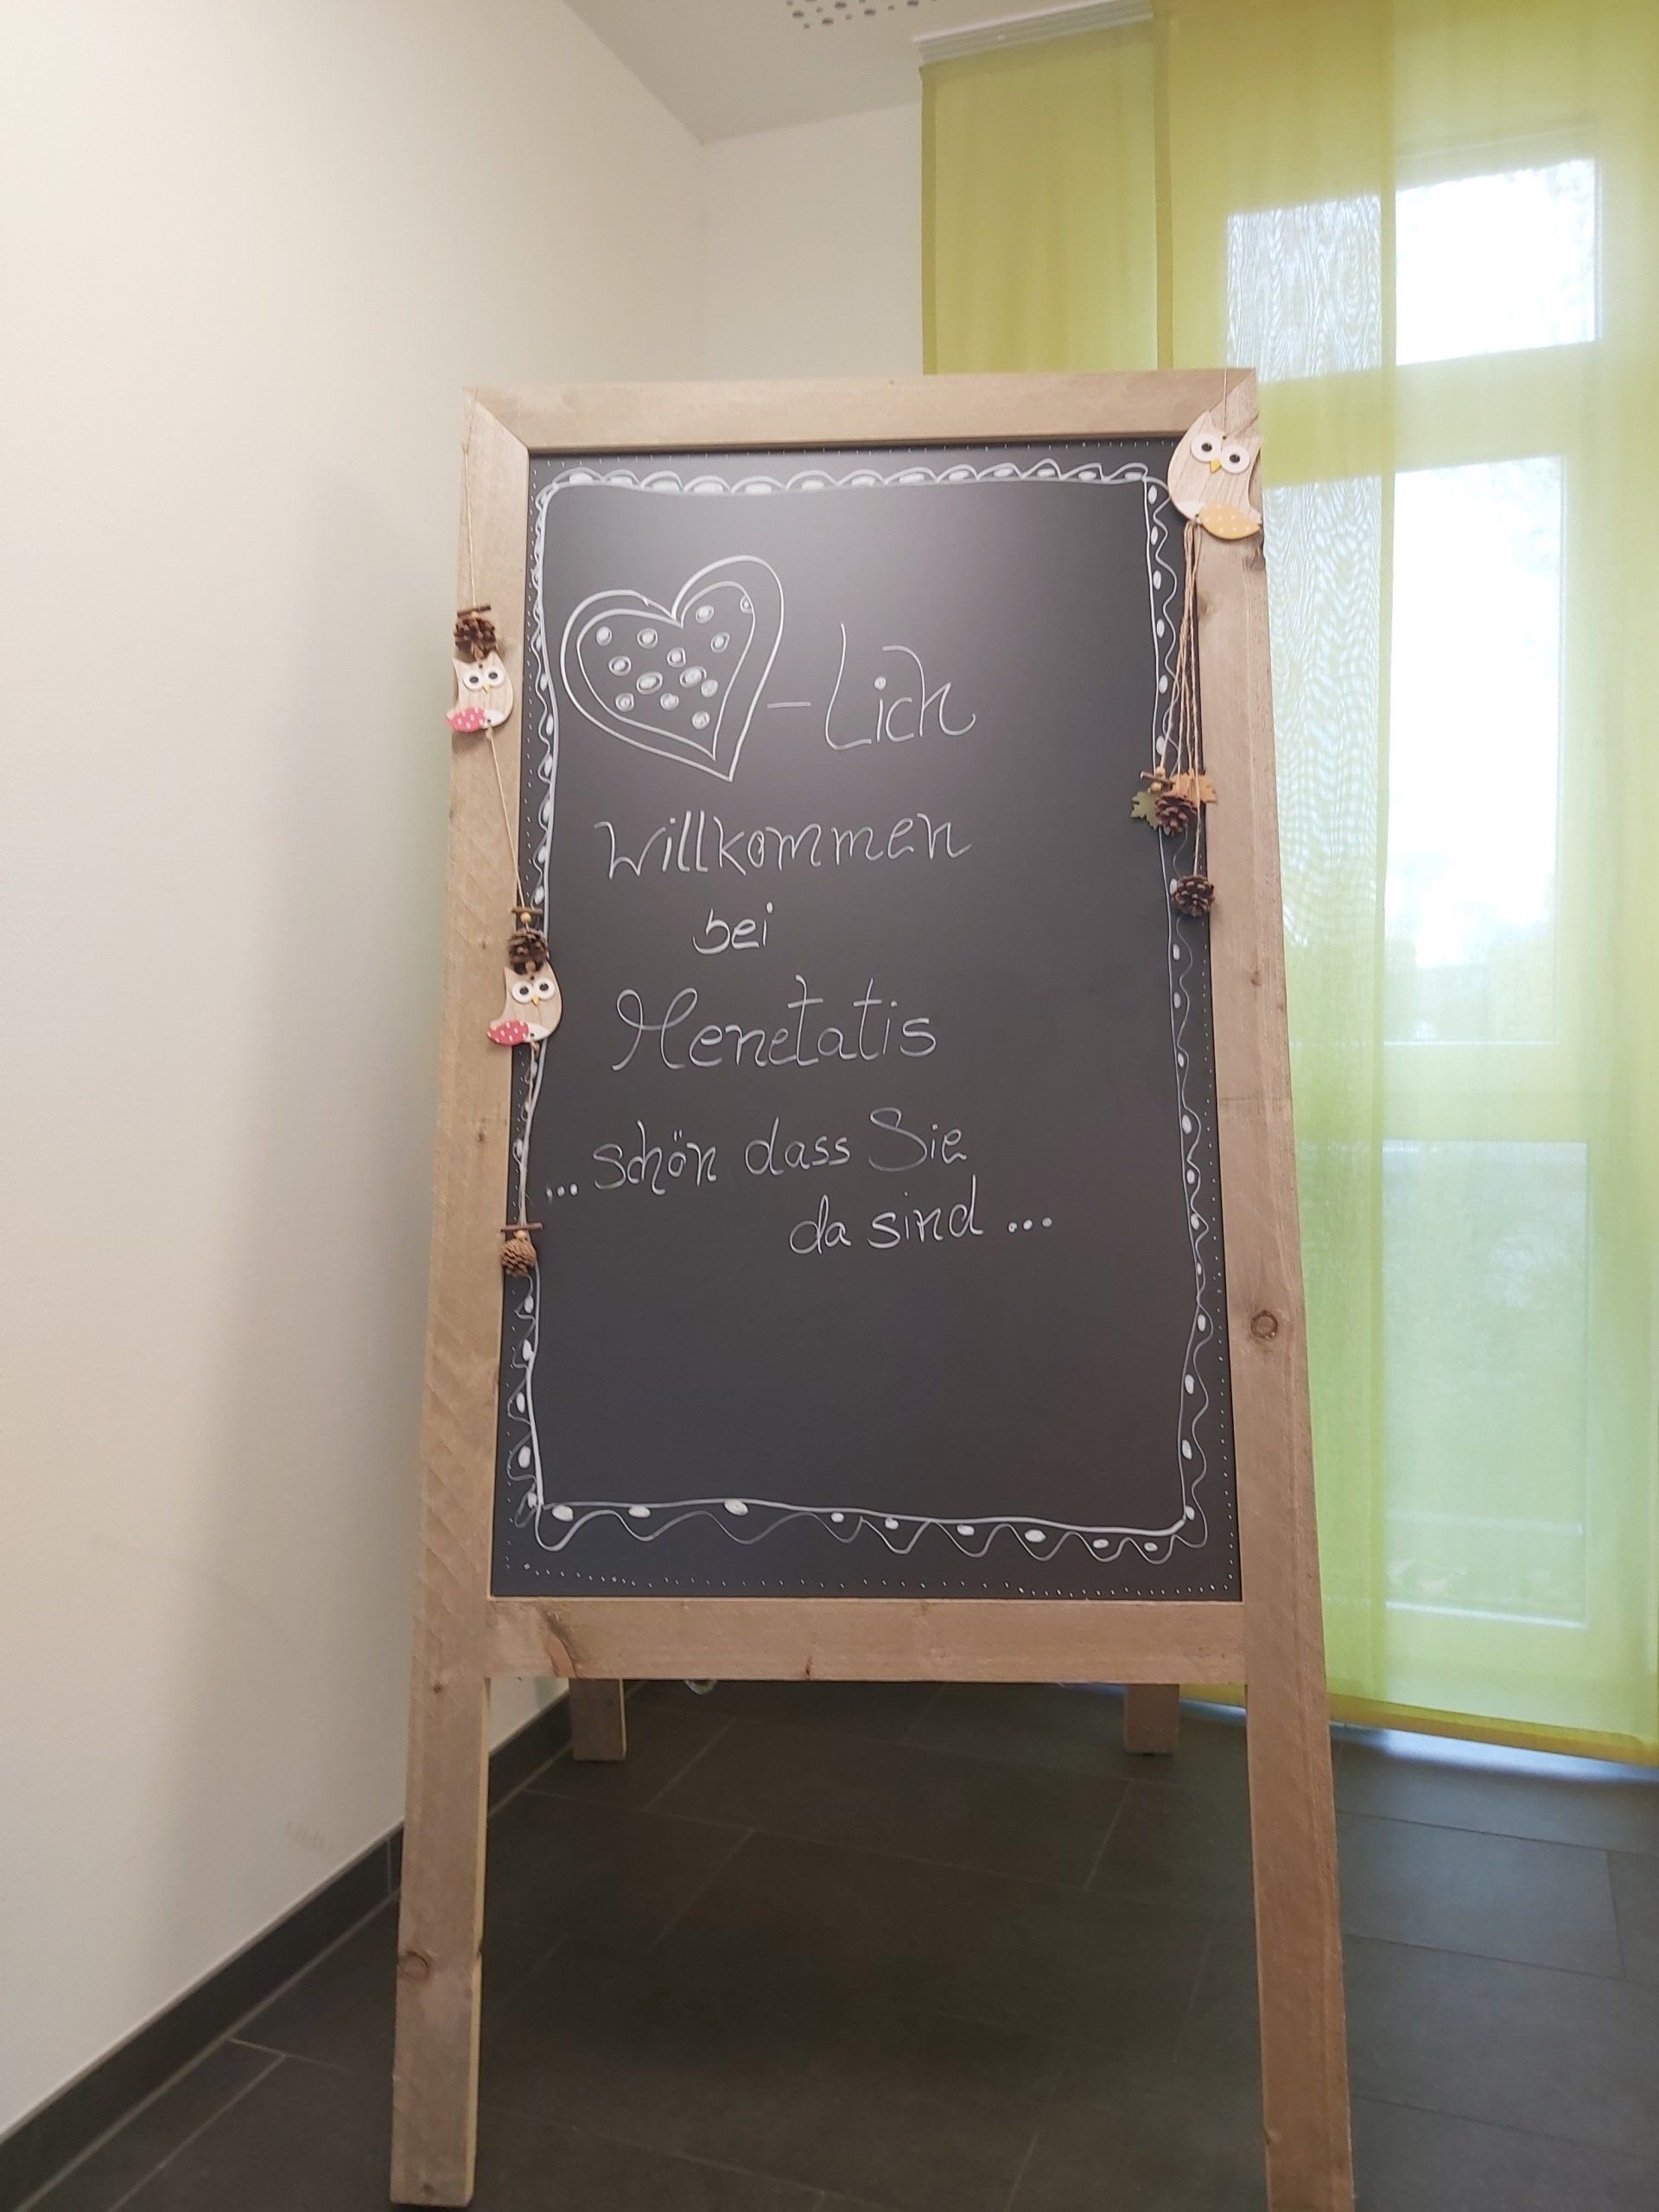 -Lich
Willkommen
bei
Menetatis
... schön dass Sie
da sind ...